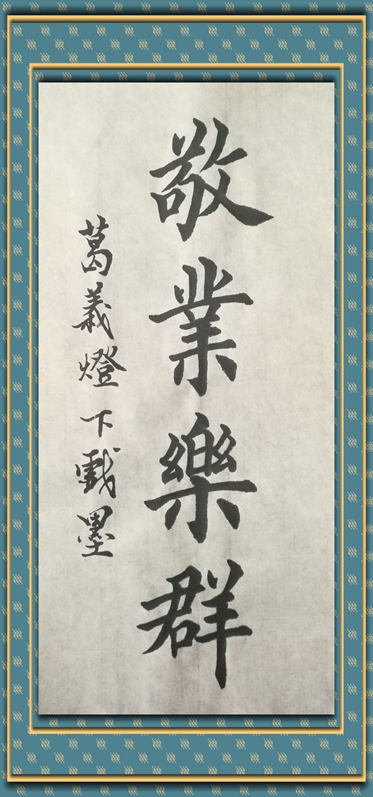 敬業樂群
葛義燈下戲墨